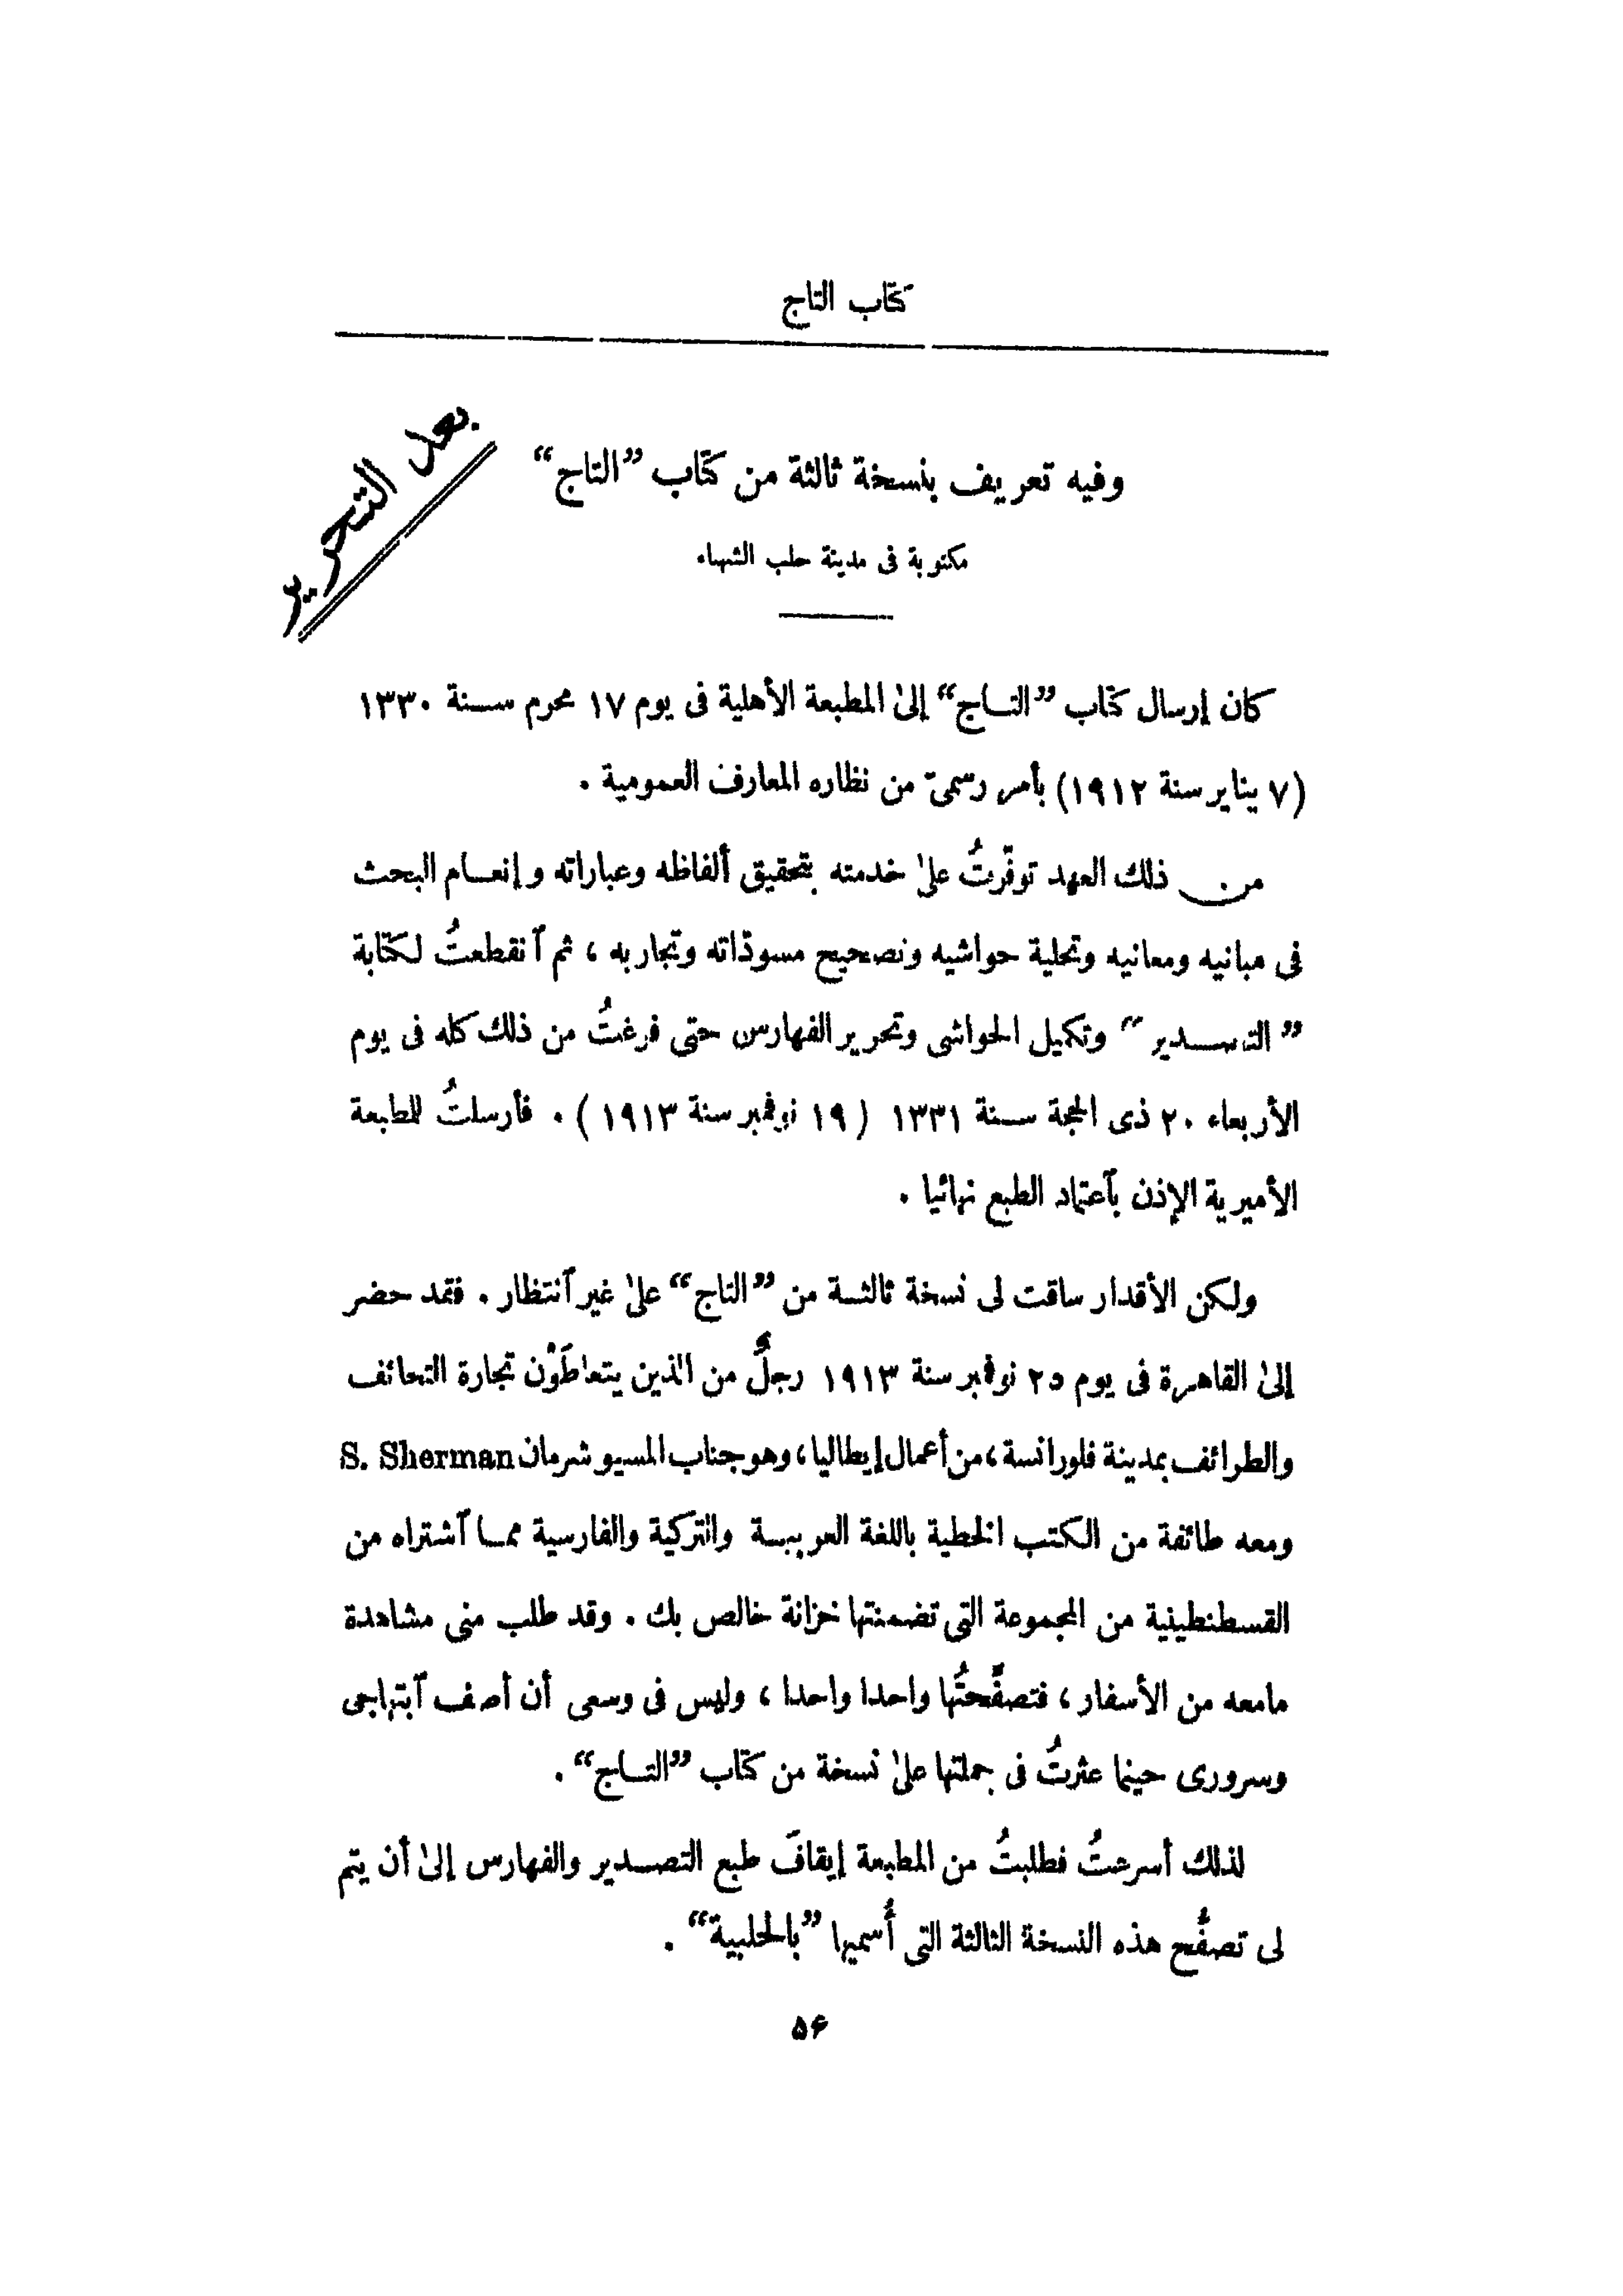 كتاب التاج
بعد التحرير
وفيه تعريف بنسخة ثالثة من كتاب ”التاج“
مكتوبة فى مدينة حلب الشهباء
كان إرسال كتاب ”التاج“ إلىٰ المطبعة الأهلية فى يوم ١٧ محرم سنة ١٣٣٠
(٧ يناير سنة ١٩١٢) بأمر رسمىّ من نظاره المعارف العمومية .
من ذلك العهد توفّرتُ علىٰ خدمته بتحقيق ألفاظه وعباراته وإنعام البحث
فى مبانيه ومعانيه وتحلية حواشيه وتصحيح مسودّاته وتجاربه ، ثم ٱنقطعتُ لكتابة
”التصدير“ وتكميل الحواشى وتحرير الفهارس حتى فرغتُ من ذلك كله فى يوم
الأربعاء ٢٠ ذى الحجة سنة ١٣٣١ (١٩ نوفمبر سنة ١٩١٣) . فأرسلتُ للمطبعة
الأميرية الإذن بٱعتماد الطبع نهائيا .
ولكن الأقدار ساقت لى نسخة ثالثة من ”التاج“ علىٰ غير ٱنتظار . فقد حضر
إلىٰ القاهرة فى يوم ٢٥ نوفمبر سنة ١٩١٣ رجلٌ من الذين يتعاطَوْن تجارة التحائف
والطرائف بمدينة فلورانسة ، من أعمال إيطاليا ، وهو جناب المسيو شرمان S. Sherman
ومعه طائفة من الكتب الخطية باللغة العربية والتركية والفارسية مما ٱشتراه من
القسطنطينية من المجموعة التى تضمنتها خزانة خالص بك . وقد طلب منى مشاهدة
مامعه من الأسفار ، فتصفّحتُها واحدا واحدا ، وليس فى وسعى أن أصف ٱبتهاجى
وسرورى حينما عثرتُ فى جملتها علىٰ نسخة من كتاب ”التاج“ .
لذلك أسرعتُ فطلبتُ من المطبعة إيقافَ طبع التصدير والفهارس إلىٰ أن يتم
لى تصفُّح هذه النسخة الثالثة التى أُسميها ”بالحلبية“ .
۵۶